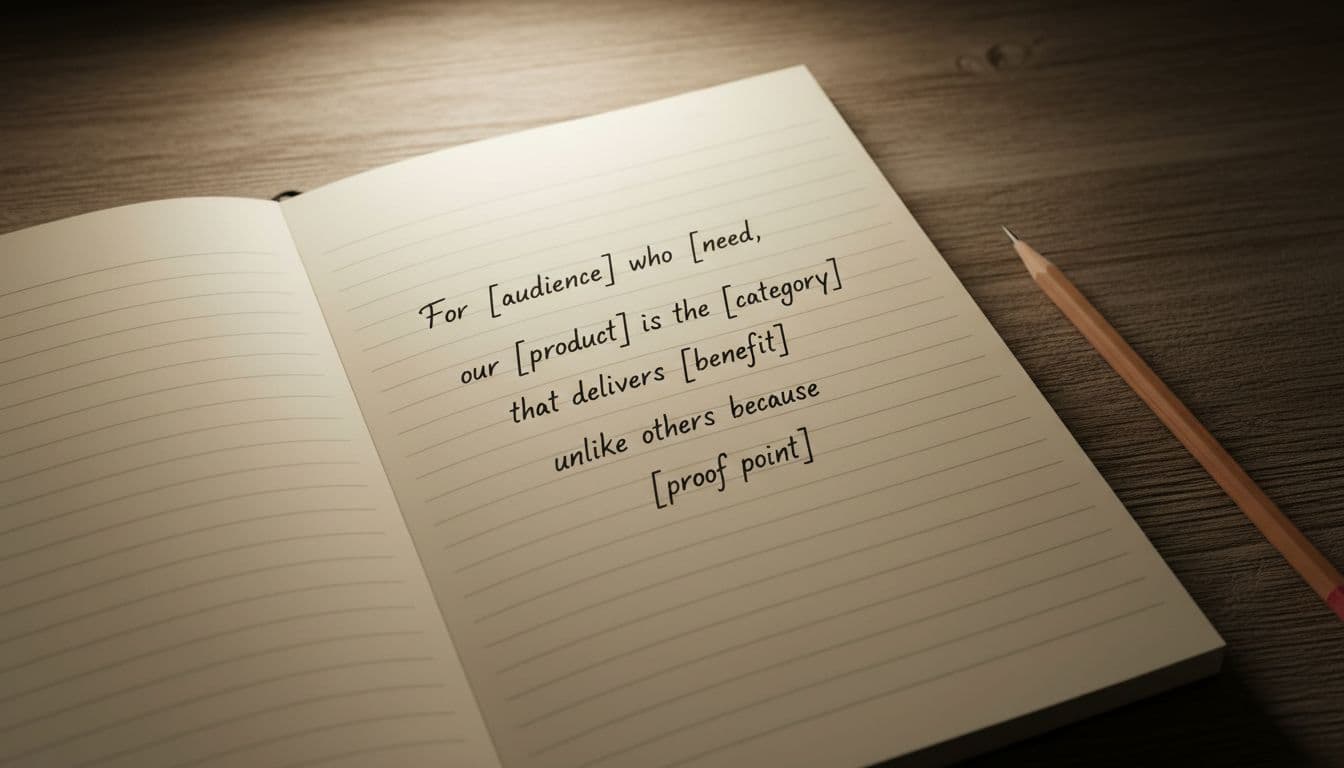 For [audience] who [need,
our [product] is the [category]
that delivers [benefit]
unlike others because
[proof point]